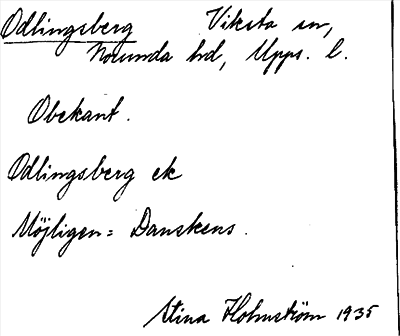 Odlingsberg Viksta sn,
Norunda hd, Upps. l.
Obekant.
Odlingsberg ek
Möjligen = Danskens.
Stina Holmström 1935